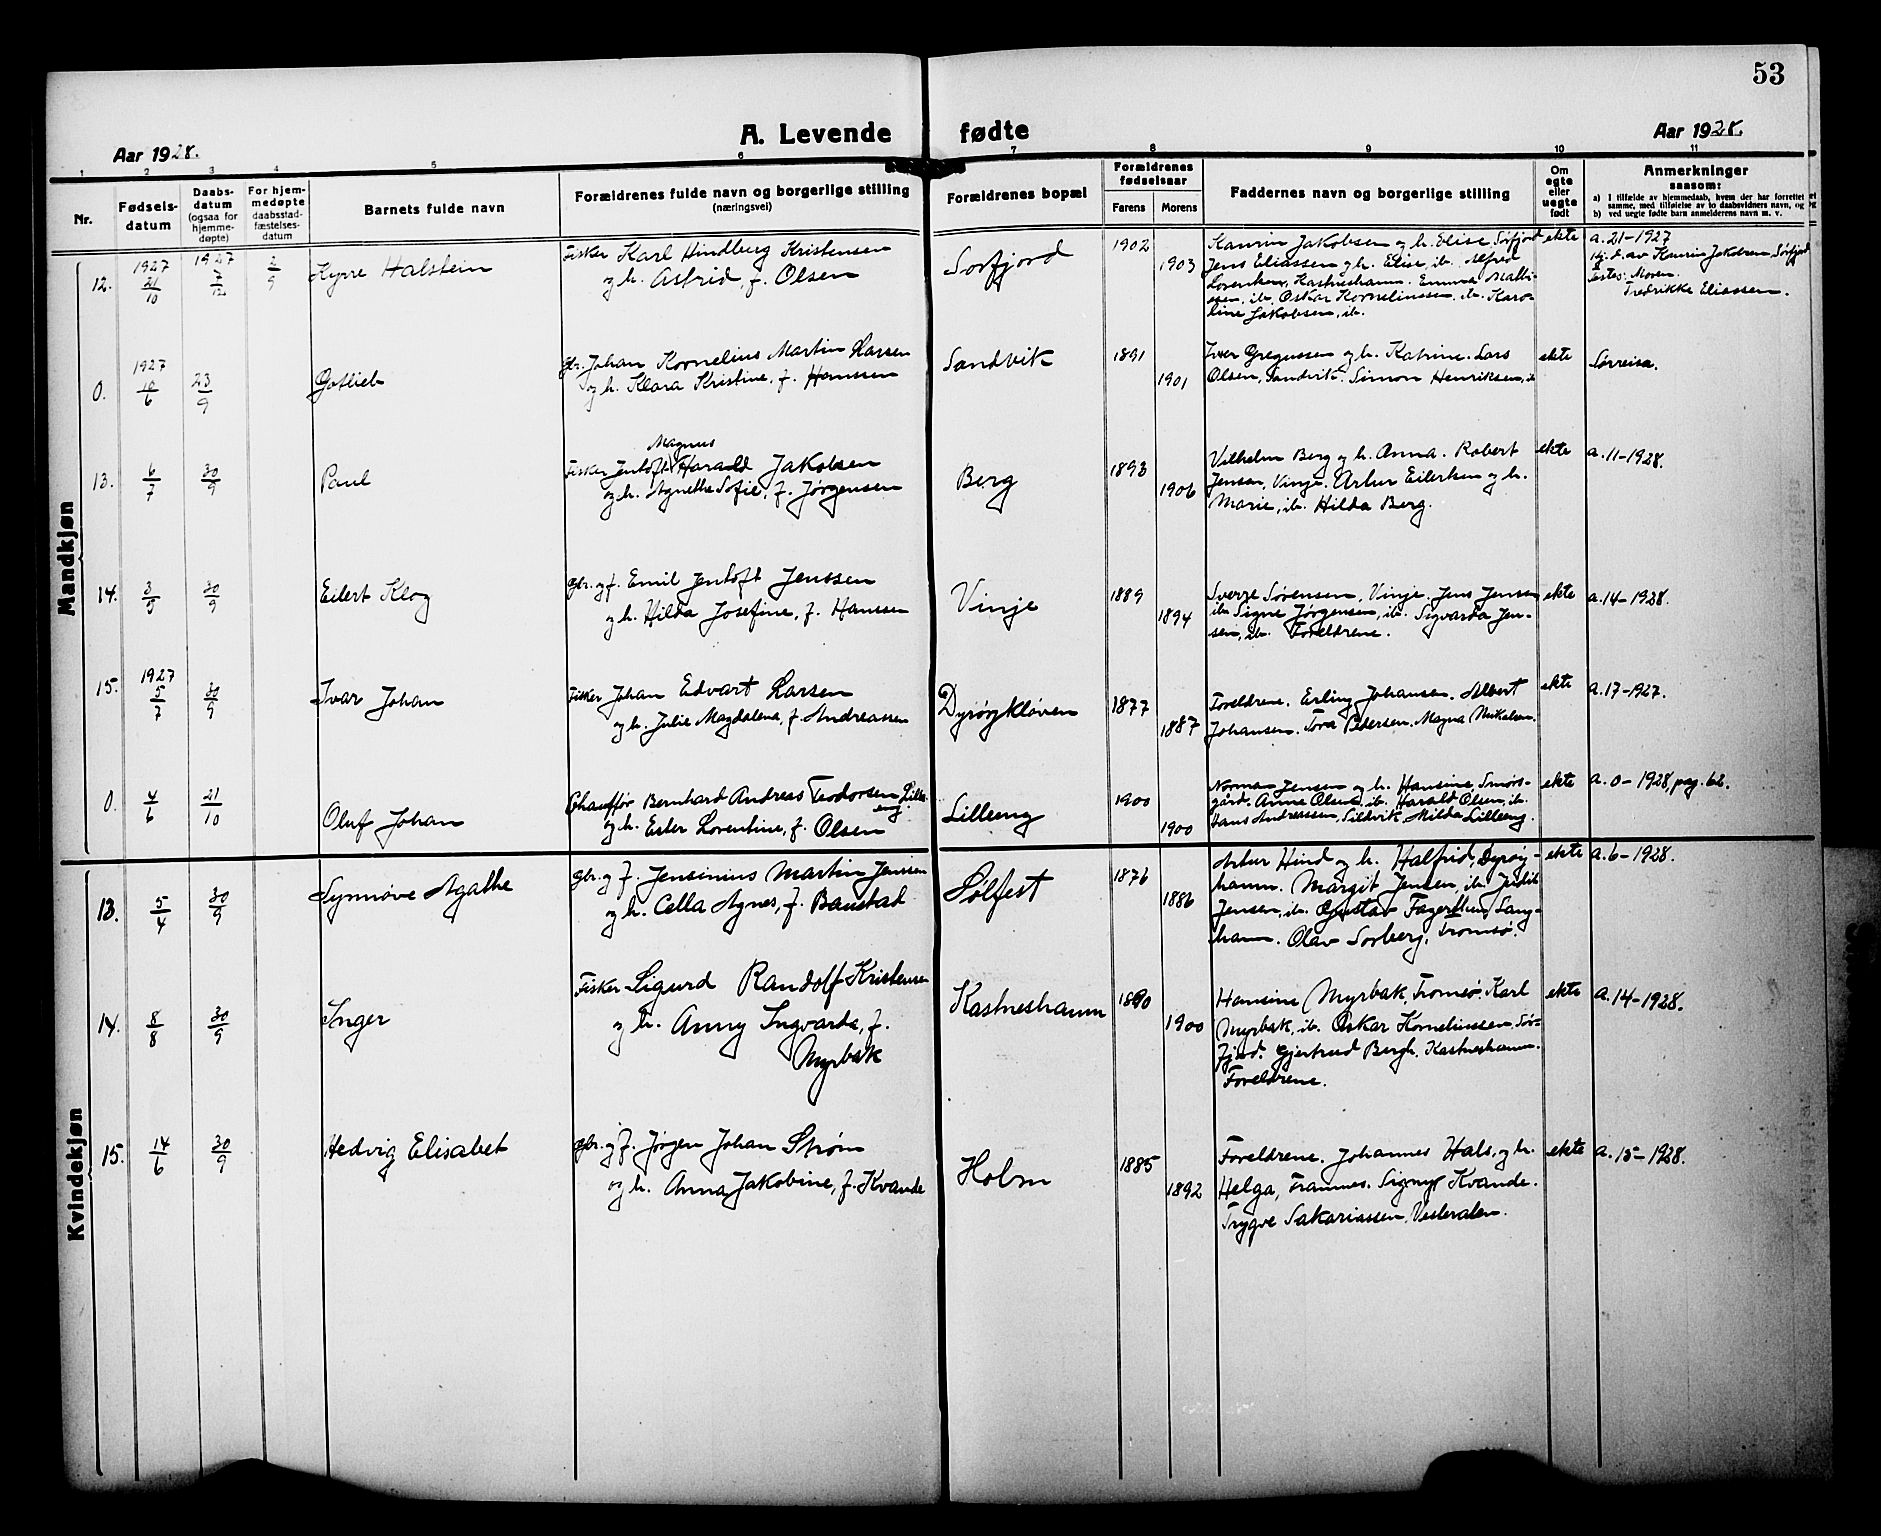 53
A. Levende fødte
Aar 1928.
Aar 1928.
1 2 3 4 5 6 7 8 9 10 11
Nr.
Fødsels-
datum
Daabs-
datum
(ogsaa for
hjemme-
døpte)
For hjem-
medøpte
daabsstad-
fæstelses-
datum
Barnets fulde navn
Forældrenes fulde navn og borgerlige stilling
(næringsvei)
Forældrenes bopæl
Forældrenes
fødselsaar
Farens
Morens
Faddernes navn og borgerlige stilling
Om
egte
eller
uegte
født
Anmerkninger
saasom:
a) I tilfælde av hjemmedaab, hvem der har forrettet
samme, med tilføielse av to daabsvidners navn, og
b) ved uegte fødte barn anmelderens navn m. v.
Mandkjøn
12.
1927
21/10
1927
7/12
2/9
Kyrre Halstein
Fisker Karl Hindberg Kristensen
og h. Astrid f. Olsen
Sørfjord
1902
1903
Kaurin Jakobsen og h. Elise, Sørfjord
Jens Eliassen og h. Elise, ib. Alfred
Lorentsen, Kastneshamn. Emma Mathi-
sen, ib. Oskar Kornelinssen, ib. Karo-
line Jakobsen, ib.
ekte
a. 21-1927
Hj.d. av Kaurin Jakobsen Sørfjord
Testes: Moren.
Fredrikke Eliassen.
0.
1927
10/6
23/9
Gotlieb
Gbr. Johan Kornelius Martin Larsen
og h. Klara Kristine, f. Hanssen
Sandvik
1891
1901
Iver Gregussen og h. Katrine. Lars
Olsen, Sandvik. Simon Henriksen, ib
ekte
Sørreisa.
13.
6/7
30/9
Paul
Magnus
Fisker Jentoft Harald Jakobsen
og h. Agnethe Sofie, f. Jørgensen
Berg
1893
1906
Vilhelm Berg og h. Anna. Robert
Jensen, Vinje. Artur Eilertsen og h.
Marie, ib. Hilda Berg.
ekte
a. 11-1928.
14.
3/5
30/9
Eilert Klog
Gbr. og f. Emil Jentoft Jenssen
og h. Hilda Josefine, f. Hanssen
Vinje
1889
1894
Sverre Sørensen, Vinje. Jens Jensen
ib. Signe Jørgensen, ib. Sigvarda Jen-
sen, ib. Foreldrene.
ekte
a. 14-1928.
15.
1927
5/7
30/9
Ivar Johan
Fisker Johan Edvart Larsen
og h. Julie Magdalena, f. Andreassen
Dyrøykløven
1877
1887
Foreldrene. Erling Johansen. Albert
Johansen. Tora Pedersen. Magna Mikalsen.
ekte
a. 17-1927.
0.
4/6
21/10
Oluf Johan
Chauffør Bernhard Andreas Teodorsen Lille-
eng
og h. Ester Lorentine, f. Olsen
Lilleeng
1900
1900
Norman Jensen og h. Hansine Smørs-
gård. Anna Olsen, ib. Harald Olsen, ib.
Hans Andreassen, Sildvik. Milda Lilleeng.
ekte
a. 0-1928, pag. 62.
Kvindekjøn
13.
5/4
30/9
Synnøve Agathe
Gbr. og f. Jensinius Martin Jenssen
og h. Cella Agnes, f. Baustad
Sølfest
1876
1886
Artur Hind og h. Halfrid, Dyrøy-
hamn. Margit Jensen, ib. Judit
Jensen, ib. Gustav Fagerthun, Lang-
hamn. Olav Sørberg, Tromsø.
ekte
a. 6-1928.
14.
8/8
30/9
Inger
Fisker Sigurd Randolf Kristensen
og h. Anny Ingvarda, f.
Myrbak
Kastneshamn
1890
1900
Hansine Myrbak, Tromsø. Karl
Myrbak, ib. Oskar Kornelinssen, Sør-
fjord. Gjertrud Bergh, Kastneshamn.
Foreldrene.
ekte
a. 14-1928.
15.
14/6
30/9
Hedvig Elisabet
Gbr. og f. Jørgen Johan Strøm
og h. Anna Jakobine, f. Kvande
Holm
1885
1892
Foreldrene. Johannes Hals, og h.
Helga, Frannes. Signy Kvande.
Trygve Sakariassen, Vesterålen.
ekte
a. 15-1928.